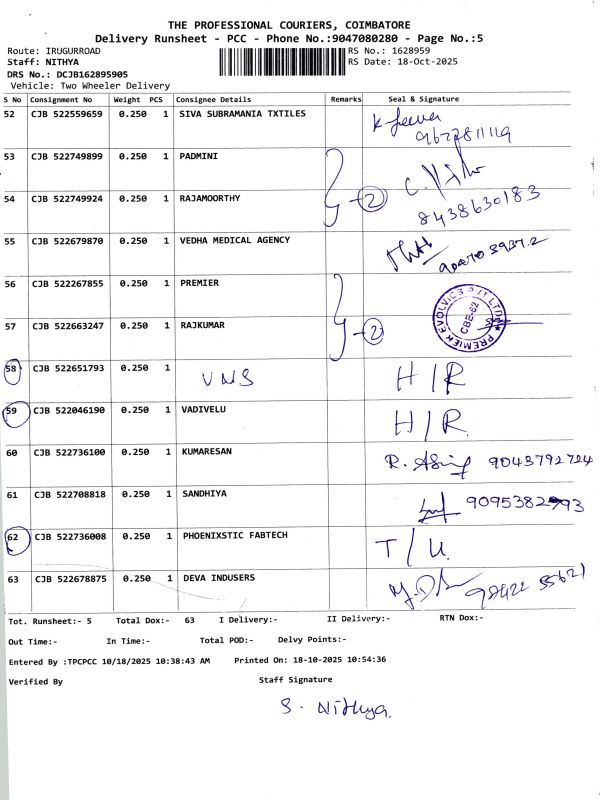 THE PROFESSIONAL COURIERS, COIMBATORE
Delivery Runsheet - PCC - Phone No.:9047080280 - Page No.:5
Route: IRUGURROAD RS No.: 1628959
Staff: NITHYA RS Date: 18-Oct-2025
DRS No.: DCJB162895905
Vehicle: Two Wheeler Delivery
S No Consignment No Weight PCS Consignee Details Remarks Seal & Signature
52 CJB 522559659 0.250 1 SIVA SUBRAMANIA TXTILES
53 CJB 522749899 0.250 1 PADMINI
54 CJB 522749924 0.250 1 RAJAMOORTHY 2 8438630183
55 CJB 522679870 0.250 1 VEDHA MEDICAL AGENCY
56 CJB 522267855 0.250 1 PREMIER PREMIER EVOLVICS PVT LTD CBE-62
57 CJB 522663247 0.250 1 RAJKUMAR 2
58 CJB 522651793 0.250 1 VNS H/R
59 CJB 522046190 0.250 1 VADIVELU H/R
60 CJB 522736100 0.250 1 KUMARESAN 9043792724
61 CJB 522708818 0.250 1 SANDHIYA
62 CJB 522736008 0.250 1 PHOENIXSTIC FABTECH T/U
63 CJB 522678875 0.250 1 DEVA INDUSERS 98422 55621
Tot. Runsheet:- 5 Total Dox:- 63 I Delivery:- II Delivery:- RTN Dox:-
Out Time:- In Time:- Total POD:- Delvy Points:-
Entered By :TPCPCC 10/18/2025 10:38:43 AM Printed On: 18-10-2025 10:54:36
Verified By Staff Signature
S. Nithya.